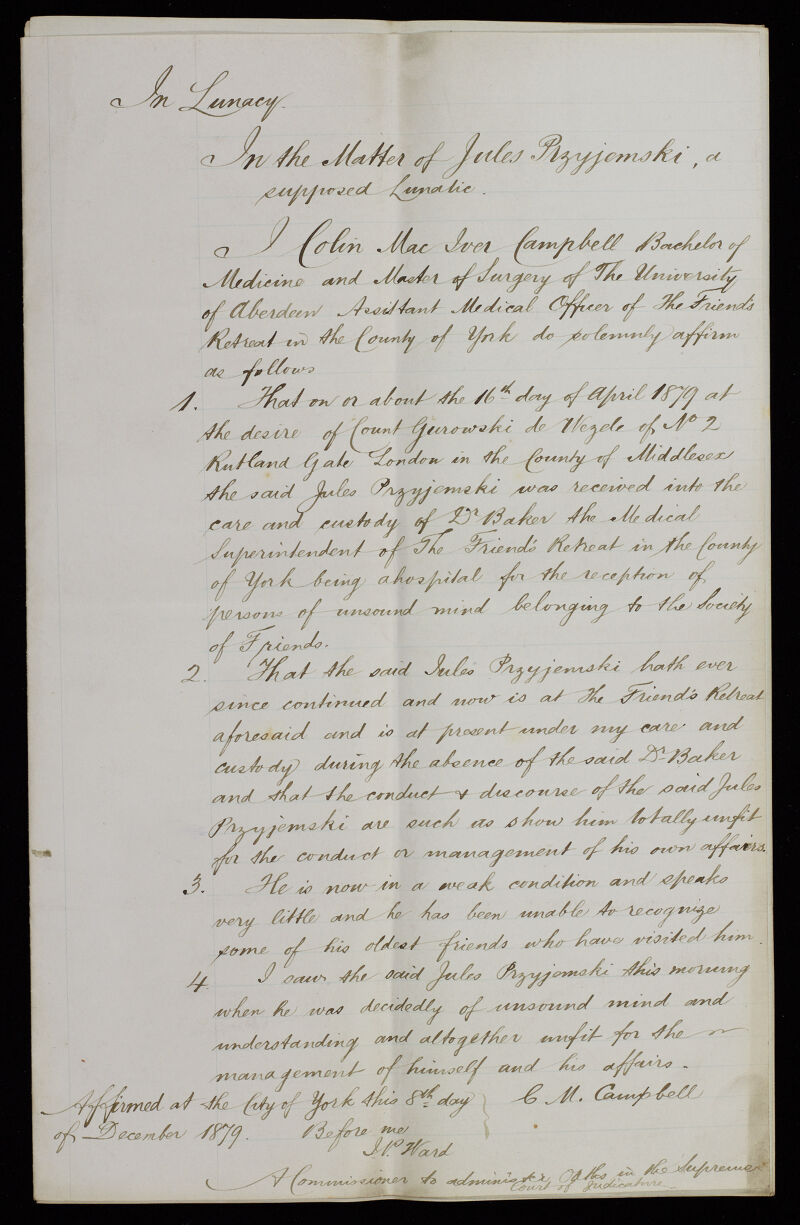 In Lunacy.
In the Matter of Jules Przyjemski, a
supposed Lunatic.
I Colin Mac Iver Campbell Bachelor of
Medicine and Master of Surgery of The University
of Aberdeen Assistant Medical Officer of The Friend's
Retreat in the County of York do solemnly affirm
as follows
1. That on or about the 16th day of April 1879 at
the desire of Count Gurowski de Wezele of No 2
Rutland Gate London in the County of Middlesex
the said Jules Przyjemski was received into the
care and custody of Dr Baker the Medical
Superintendent of The Friend's Retreat in the County
of York being a hospital for the reception of
persons of unsound mind belonging to the Society
of Friends.
2. That the said Jules Przyjemski hath ever
since continued and now is at the Friend's Retreat
aforesaid and is at present under my care and
custody during the absence of the said Dr Baker
and that the conduct & discourse of the said Jules
Przyjemski are such as show him totally unfit
for the conduct or management of his own affairs.
3. He is now in a weak condition and speaks
very little and he has been unable to recognize
some of his oldest friends who have visited him.
4. I saw the said Jules Przyjemski this morning
when he was decidedly of unsound mind and
understanding and altogether unfit for the
management of himself and his affairs.
Affirmed at the City of York this 8th day
of December 1879. Before me
C. M. Campbell
J. P. Ward
A Commissioner to administer Oaths in the Supreme
Court of Judicature